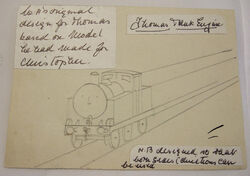 original
design for Thomas
based on Model
he had made for
Christopher.
Thomas Tank Engine
N.B designed so that
both sides/directions can
be used